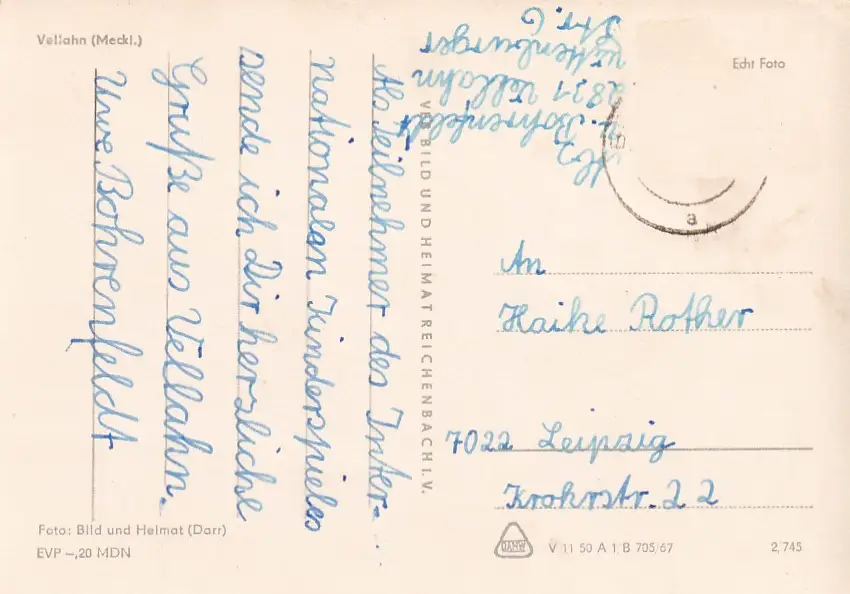 Vellahn (Meckl.)
Als Teilnehmer des Inter-
nationalen Kinderspieles
sende ich Dir herzliche
Grüße aus Vellahn.
Uwe Bohrenfeldt
Foto: Bild und Heimat (Darr)
EVP –,20 MDN
VEB BILD UND HEIMAT REICHENBACH I. V.
Bohrenfeldt
2831 Vellahn
Str. 6
Echt Foto
a
An
Haike Rother
7022 Leipzig
Krokrstr. 22
DAMW
V 11 50 A 1/B 705/67
2/745